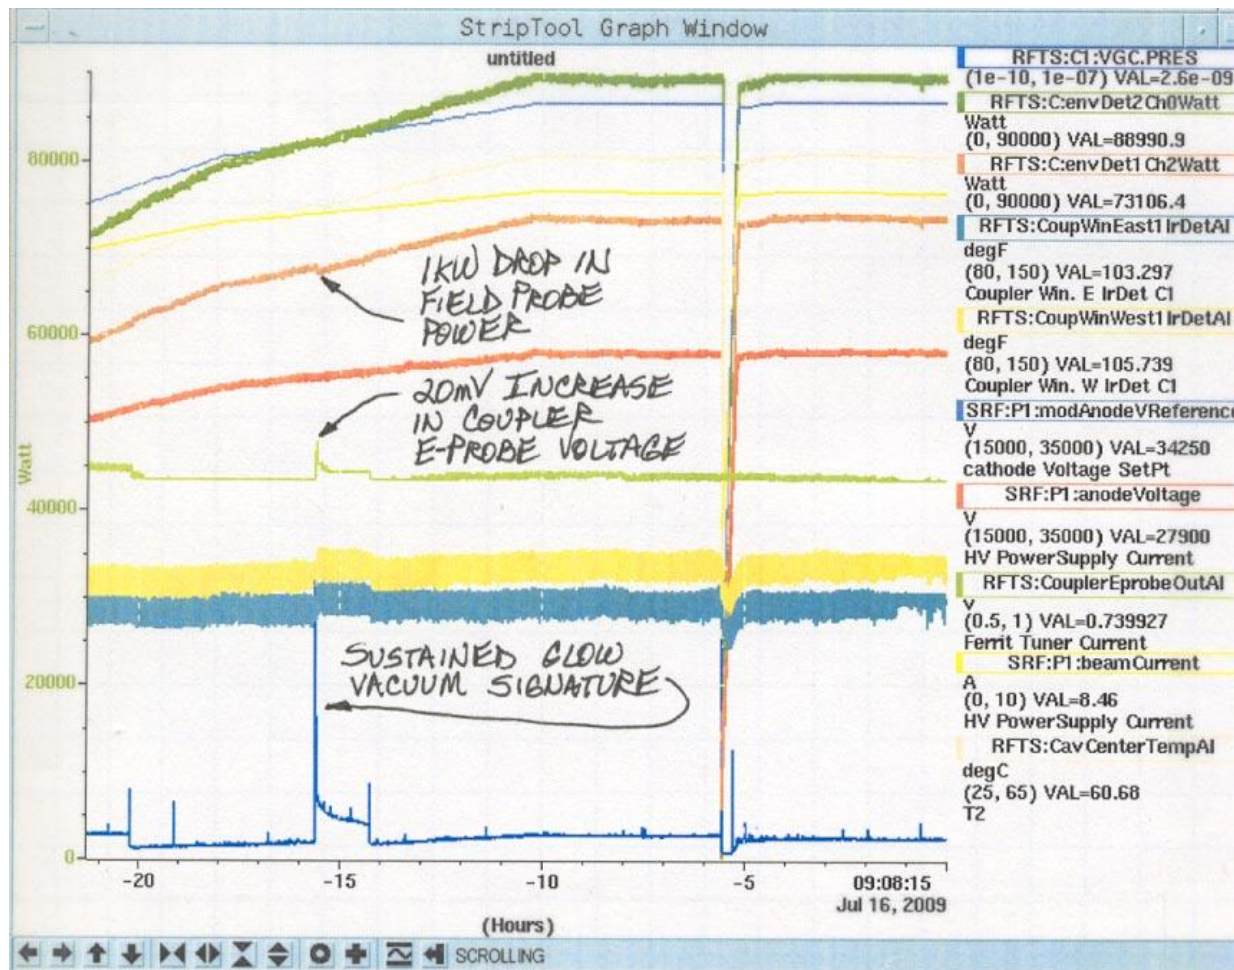 StripTool Graph Window
untitled
Watt
80000
60000
40000
20000
0
1KW DROP IN
FIELD PROBE
POWER
20mV INCREASE
IN COUPLER
E-PROBE VOLTAGE
SUSTAINED GLOW
VACUUM SIGNATURE
-20 -15 -10 -5 09:08:15
Jul 16, 2009
(Hours)
RFTS:C1:VGC.PRES
(1e-10, 1e-07) VAL=2.6e-09
RFTS:C:envDet2Ch0Watt
Watt
(0, 90000) VAL=88990.9
RFTS:C:envDet1Ch2Watt
Watt
(0, 90000) VAL=73106.4
RFTS:CoupWinEast1IrDetAI
degF
(80, 150) VAL=103.297
Coupler Win. E IrDet C1
RFTS:CoupWinWest1IrDetAI
degF
(80, 150) VAL=105.739
Coupler Win. W IrDet C1
SRF:P1:modAnodeVReference
V
(15000, 35000) VAL=34250
cathode Voltage SetPt
SRF:P1:anodeVoltage
V
(15000, 35000) VAL=27900
HV PowerSupply Current
RFTS:CouplerEprobeOutAI
V
(0.5, 1) VAL=0.739927
Ferrit Tuner Current
SRF:P1:beamCurrent
A
(0, 10) VAL=8.46
HV PowerSupply Current
RFTS:CavCenterTempAI
degC
(25, 65) VAL=60.68
T2
SCROLLING